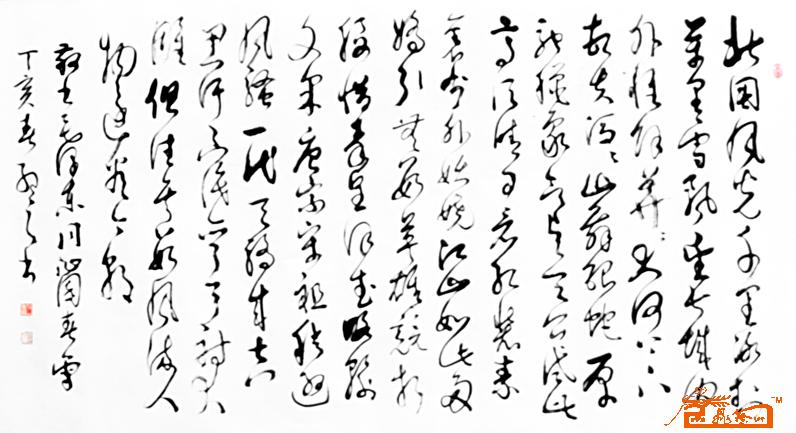 北国风光千里冰封
万里雪飘望长城内
外惟余莽莽大河上下
顿失滔滔山舞银蛇原
驰蜡象欲与天公试比
高须晴日看红装素
裹分外妖娆江山如此多
娇引无数英雄竞折
腰惜秦皇汉武略输
文采唐宗宋祖稍逊
风骚一代天骄成吉
思汗只识弯弓射大
雕俱往矣数风流人
物还看今朝
敬书毛泽东词沁园春雪
丁亥春书